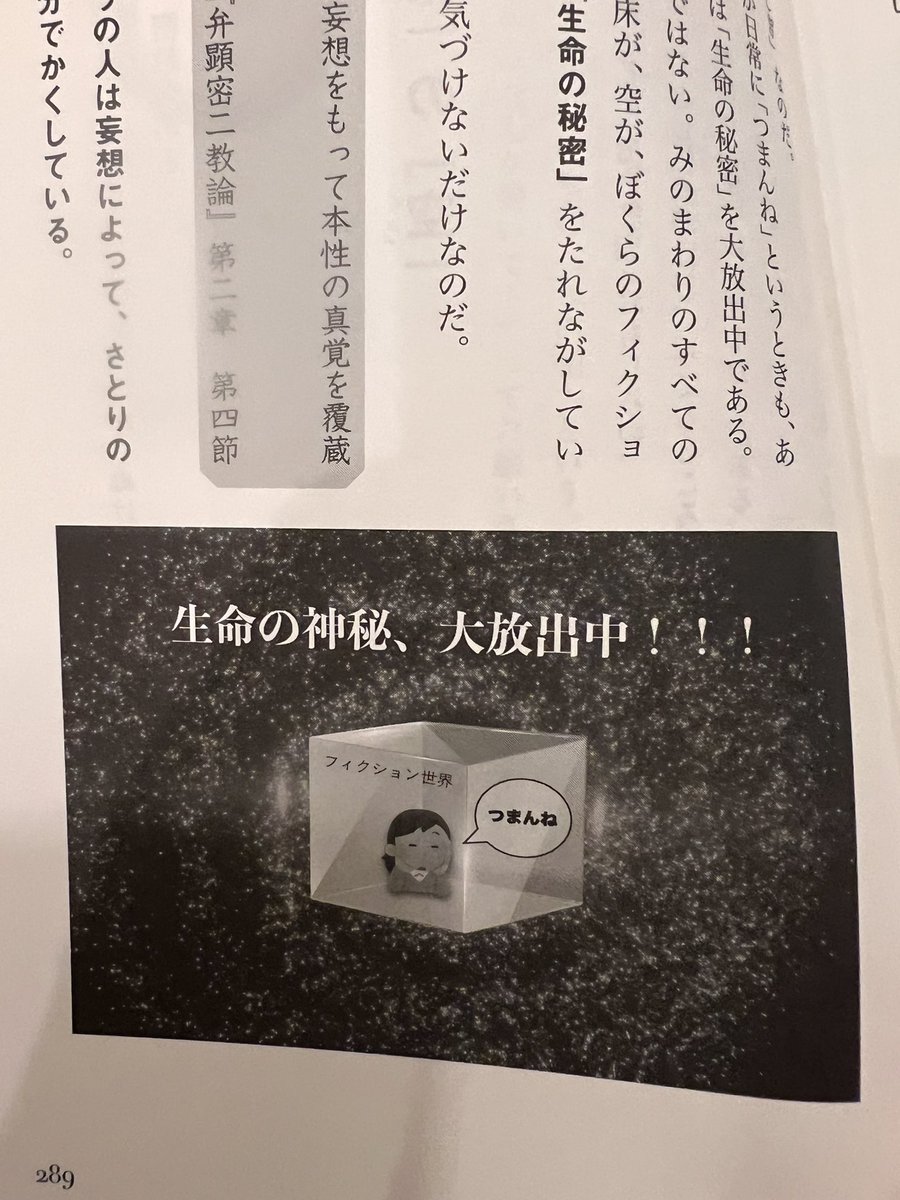 なのだ。
が日常に「つまんね」というときも、あ
は「生命の秘密」を大放出中である。
ではない。みのまわりのすべての
床が、空が、ぼくらのフィクショ
「生命の秘密」をたれながしてい
気づけないだけなのだ。
妄想をもって本性の真覚を覆蔵
『弁顕密二教論』第二章　第四節
の人は妄想によって、さとりの
分でかくしている。
生命の神秘、大放出中！！！
フィクション世界
つまんね
289